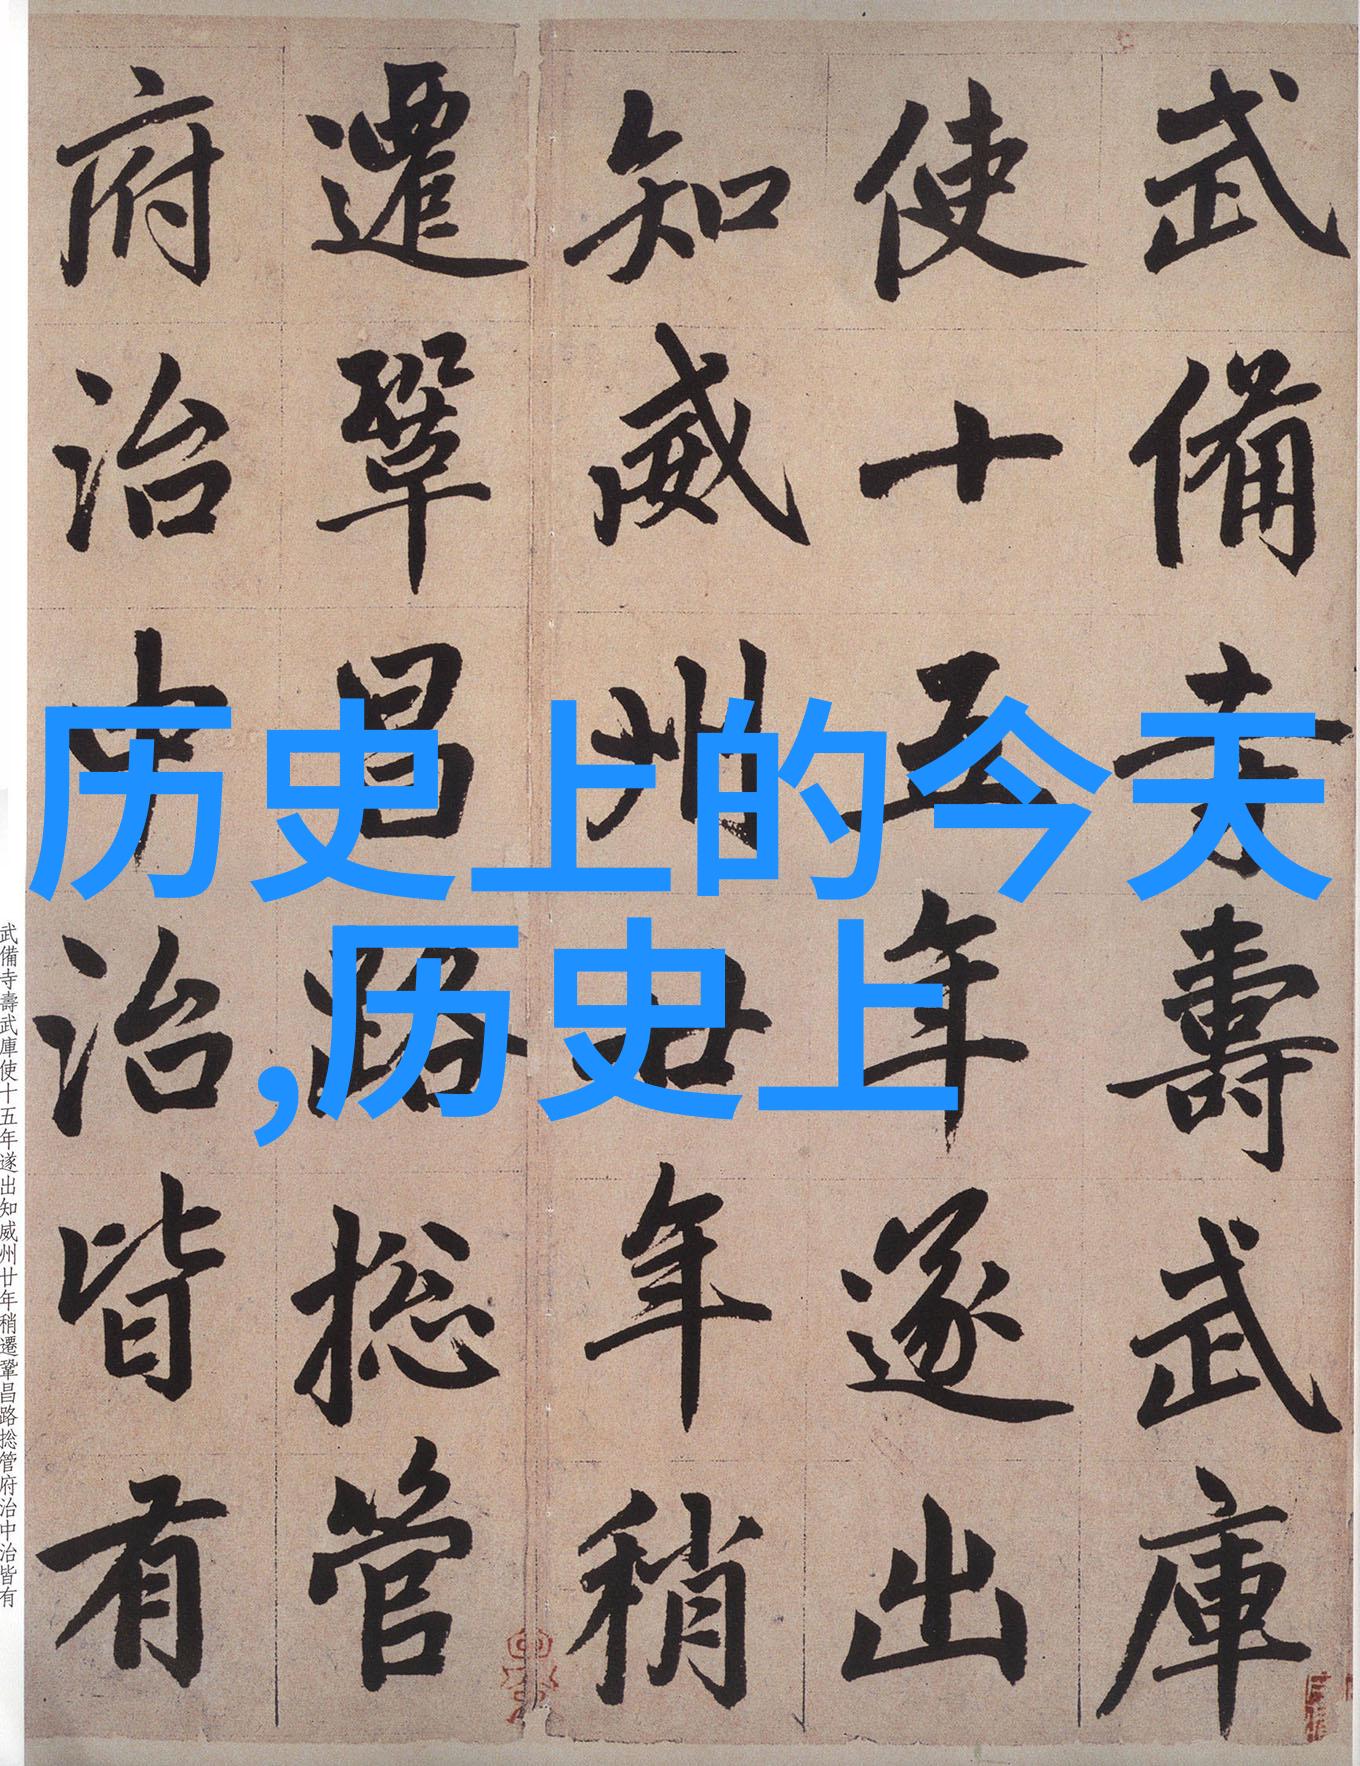 武備寺壽武庫
使十五年遂出
知威州廿年稍
遷鞏昌路捴管
府治中治皆有
历史上的今天
,历史上
武備寺壽武庫使十五年遂出知威州廿年稍遷鞏昌路捴管府治中治皆有